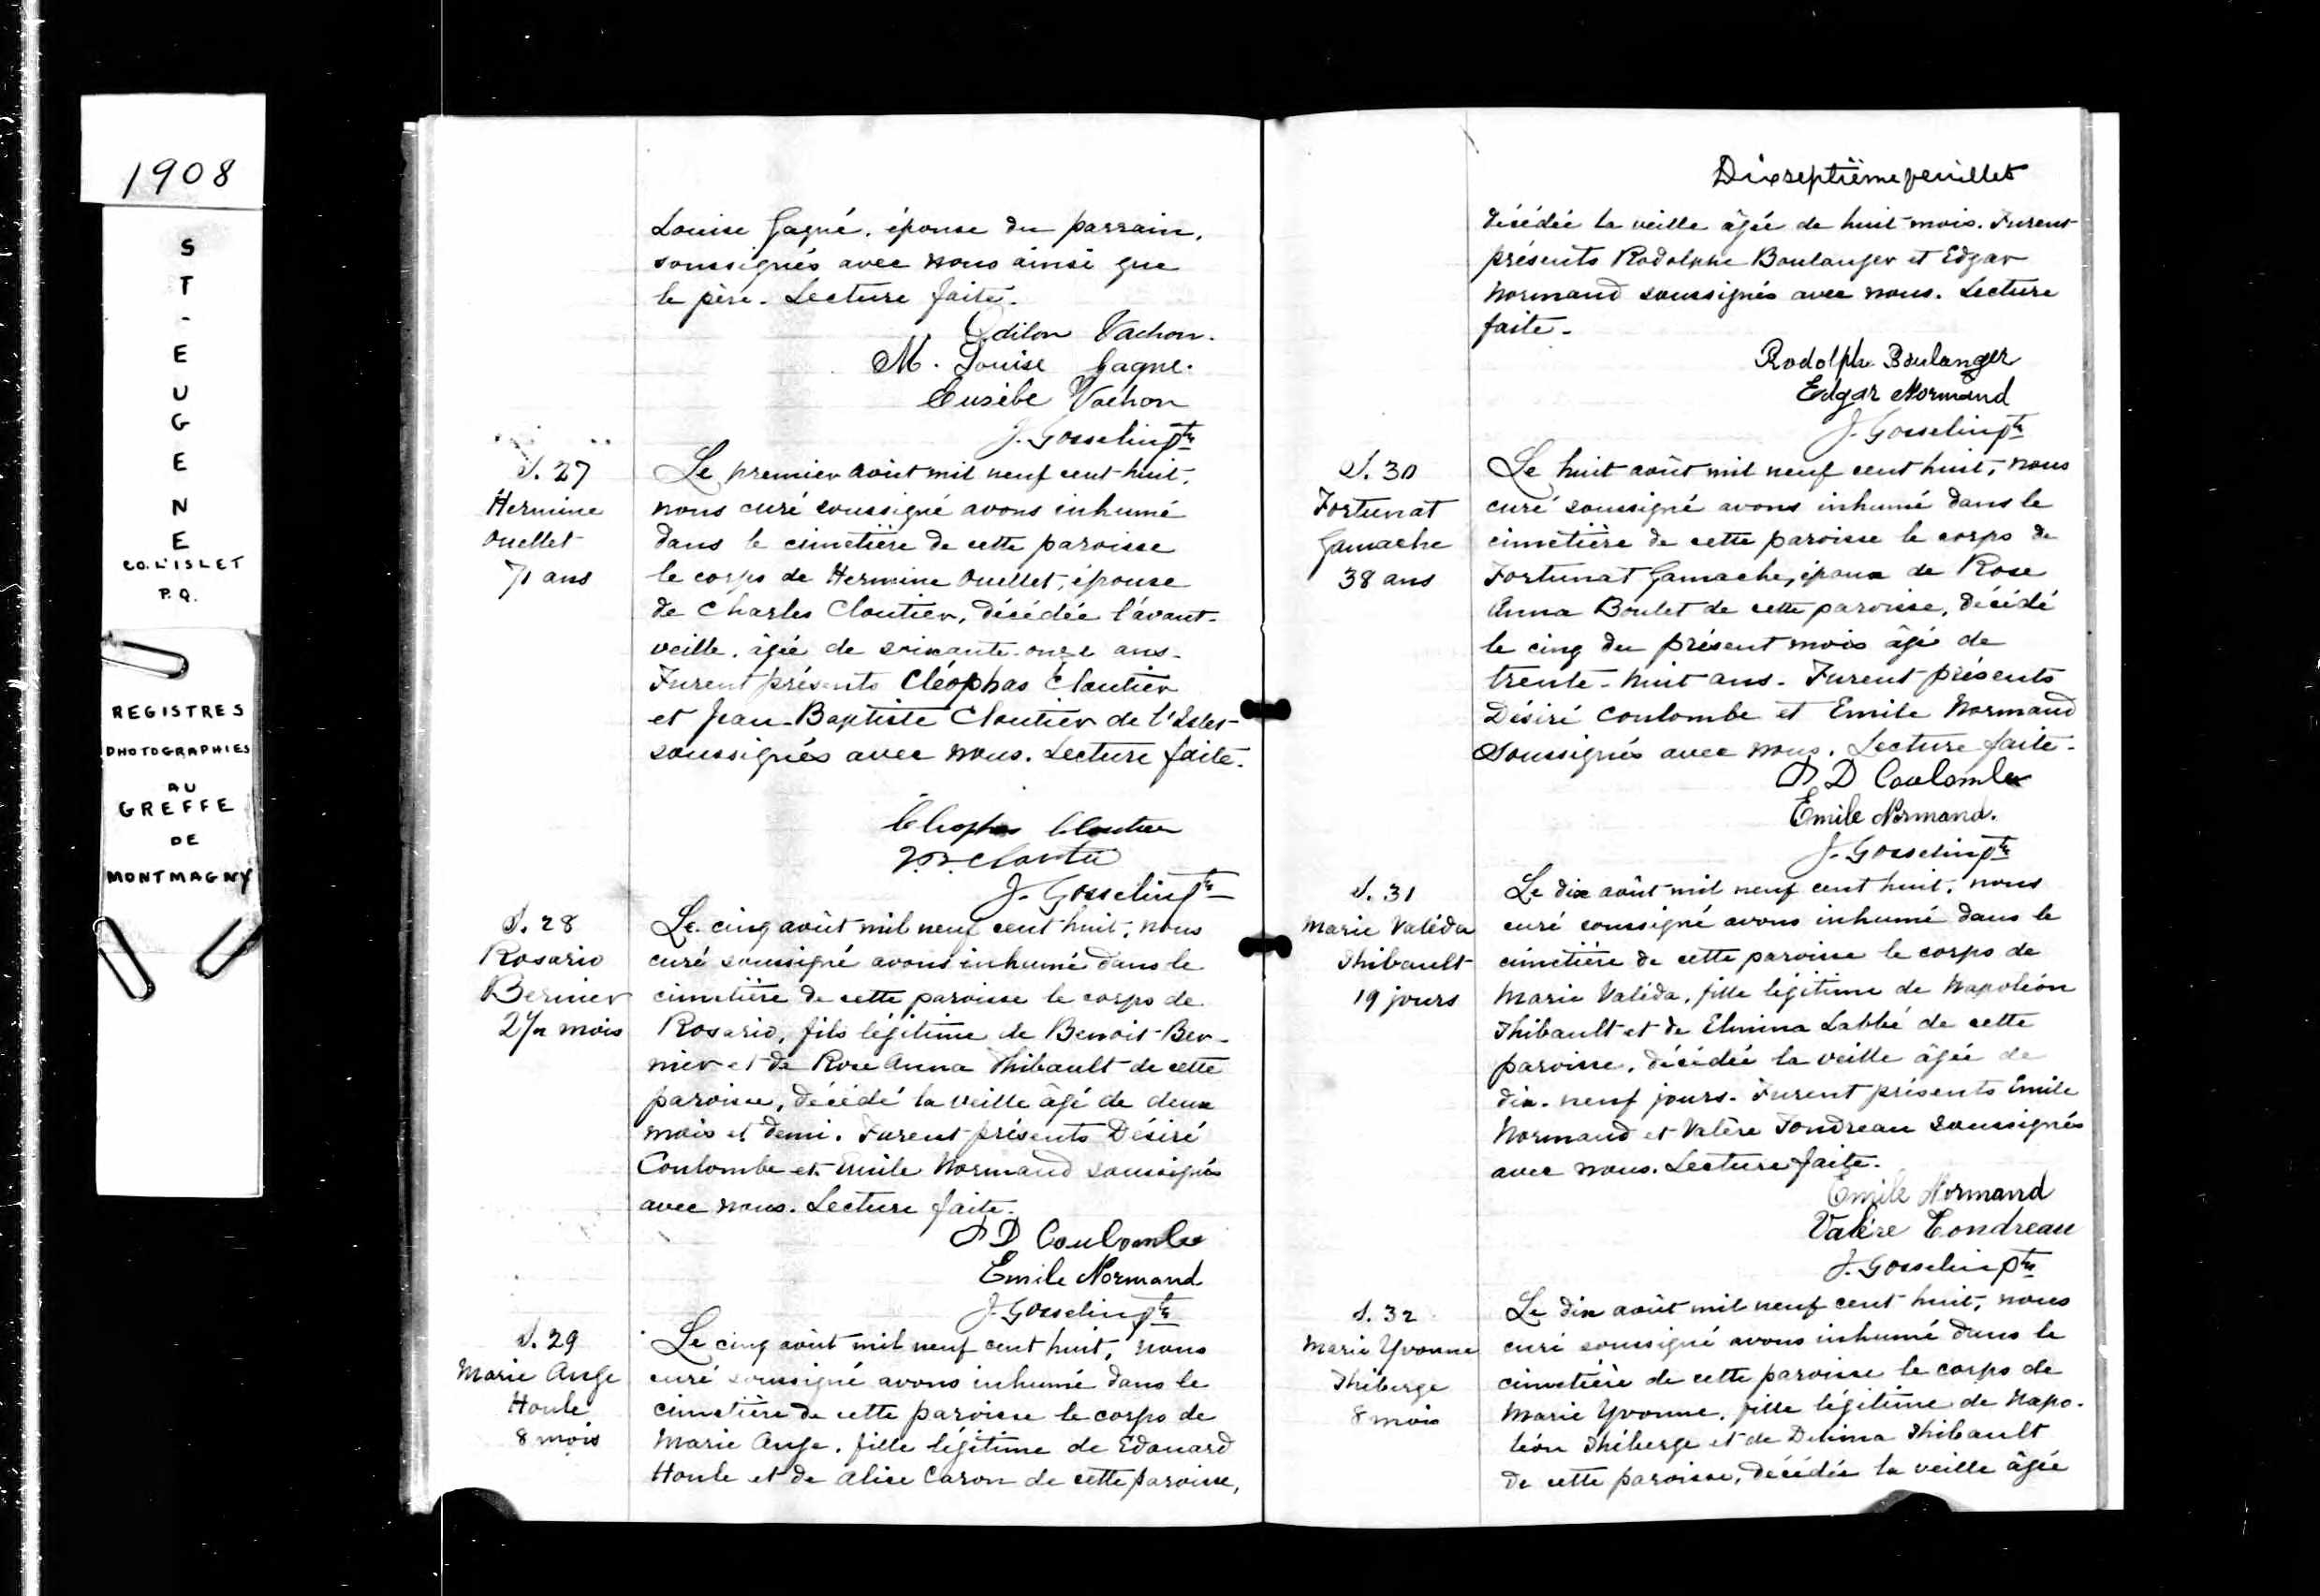 1908
S
T
-
E
U
G
E
N
E
CO. L'ISLET
P.Q.
REGISTRES
PHOTOGRAPHIES
AU
GREFFE
DE
MONTMAGNY
Louise Gagné, épouse du parrain,
soussignés avec nous ainsi que
le père. Lecture faite.
Odilon Vachon.
M. Louise Gagne.
Eusèbe Vachon
J. Gosselin ptr
S. 27
Hermine
Ouellet
71 ans
Le premier août mil neuf cent huit,
nous curé soussigné avons inhumé
dans le cimetière de cette paroisse
le corps de Hermine Ouellet, épouse
de Charles Cloutier, décédée l'avant-
veille, âgée de soixante-onze ans.
Furent présents Cléophas Cloutier
et Jean-Baptiste Cloutier de l'Islet
soussignés avec nous. Lecture faite.
Cleophas Cloutier
J.B. Cloutier
J. Gosselin ptr
S. 28
Rosario
Bernier
2 1/2 mois
Le cinq août mil neuf cent huit, nous
curé soussigné avons inhumé dans le
cimetière de cette paroisse le corps de
Rosario, fils légitime de Benoit Ber-
nier et de Rose Anna Thibault de cette
paroisse, décédé la veille âgé de deux
mois et demi. Furent présents Désiré
Coulombe et Emile Normand soussignés
avec nous. Lecture faite.
D Coulombe
Emile Normand
J. Gosselin ptr
S. 29
Marie Ange
Houle
8 mois
Le cinq août mil neuf cent huit, nous
curé soussigné avons inhumé dans le
cimetière de cette paroisse le corps de
Marie Ange, fille légitime de Edouard
Houle et de Alice Caron de cette paroisse,
Dixseptième feuillet
décédée la veille âgée de huit mois. Furent
présents Rodolphe Boulanger et Edgar
Normand soussignés avec nous. Lecture
faite.
Rodolphe Boulanger
Edgar Normand
J. Gosselin ptr
S. 30
Fortunat
Gamache
38 ans
Le huit août mil neuf cent huit, nous
curé soussigné avons inhumé dans le
cimetière de cette paroisse le corps de
Fortunat Gamache, époux de Rose
Anna Boulet de cette paroisse, décédé
le cinq du présent mois âgé de
trente-huit ans. Furent présents
Désiré Coulombe et Emile Normand
Soussignés avec nous. Lecture faite.
D Coulombe
Emile Normand.
J. Gosselin ptr
S. 31
Marie Valéda
Thibault
19 jours
Le dix août mil neuf cent huit, nous
curé soussigné avons inhumé dans le
cimetière de cette paroisse le corps de
Marie Valéda, fille légitime de Napoléon
Thibault et de Elmina Labbé de cette
paroisse, décédée la veille âgée de
dix-neuf jours. Furent présents Emile
Normand et Valère Tondreau soussignés
avec nous. Lecture faite.
Emile Normand
Valère Tondreau
J. Gosselin ptr
S. 32
Marie Yvonne
Théberge
8 mois
Le dix août mil neuf cent huit, nous
curé soussigné avons inhumé dans le
cimetière de cette paroisse le corps de
Marie Yvonne, fille légitime de Napo-
léon Théberge et de Delima Thibault
de cette paroisse, décédée la veille âgée